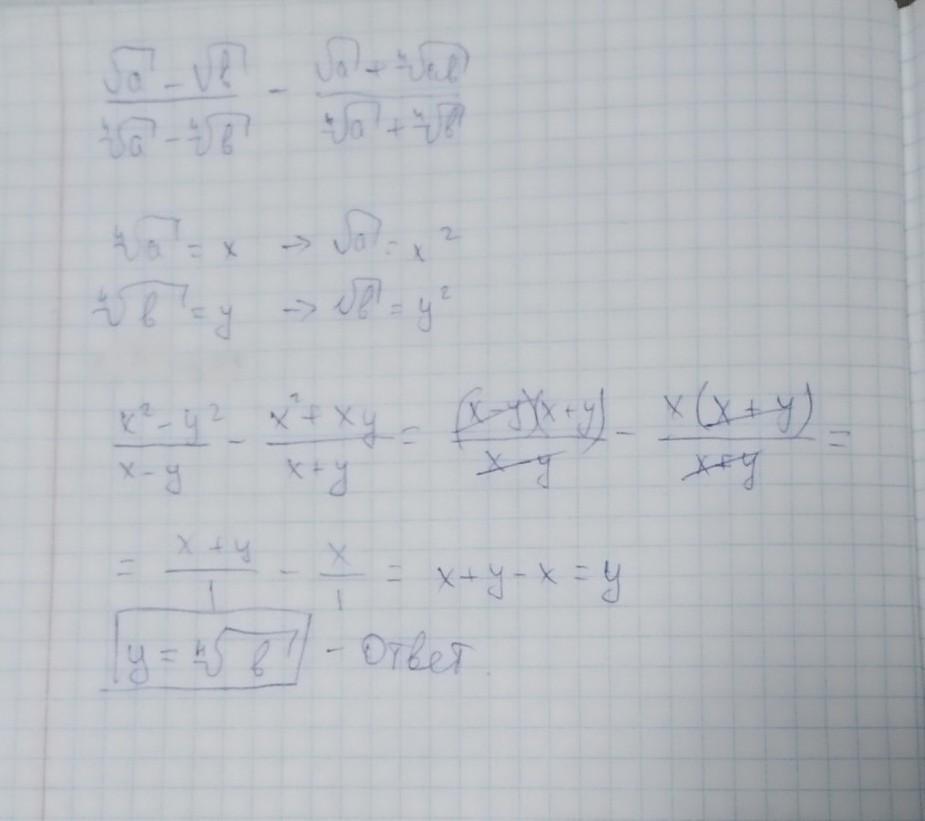 (√a - √b)/(∜a - ∜b) - (√a + ∜ab)/(∜a + ∜b)
∜a = x → √a = x²
∜b = y → √b = y²
(x² - y²)/(x - y) - (x² + xy)/(x + y) = ((x-y)(x+y))/(x - y) - (x(x+y))/(x+y) =
= (x+y)/1 - x/1 = x+y-x = y
y = ∜b - Ответ.